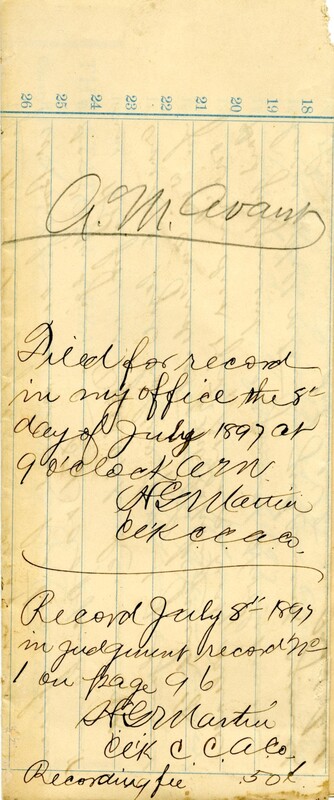 18 19 20 21 22 23 24 25 26
A. M. Avant
Filed for record
in my office the 8th
day of July 1897 at
9 o'clock A.M.
H G Martin
Cl'k C.C.A.Co.
Record July 8th 1897
in judgment record No
1 on page 96
H G Martin
Cl'k C. C. A. Co.
Recording fee .50¢